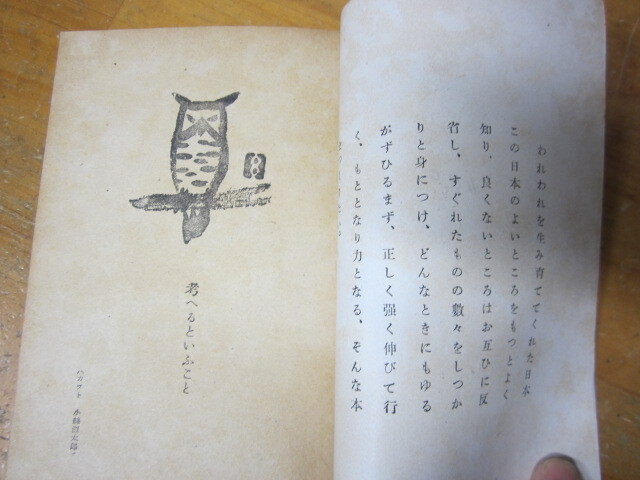 われわれを生み育ててくれた日本
この日本のよいところをもつとよく
知り、良くないところはお互ひに反
省し、すぐれたものの数々をしつか
りと身につけ、どんなときにもゆる
がずひるまず、正しく強く伸びて行
く、もととなり力となる、そんな本
考へるといふこと